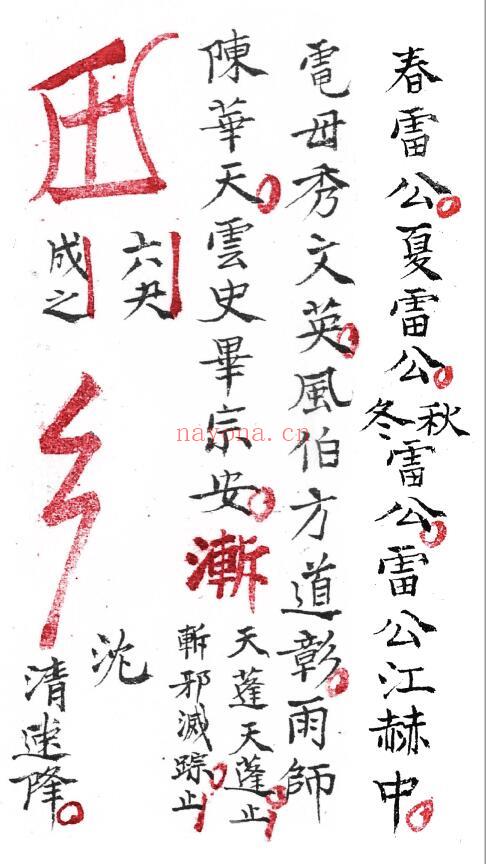 春雷公夏雷公秋冬雷公雷公江赫冲
電母秀文英風伯方道彰雨師
陳華天雲史畢宗安
漸
天蓬天蓬止
斬邪滅踪止
六尹
成之
沈
清建隆
nayona.cn